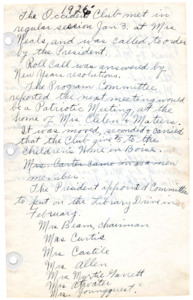 1926
The Occident Club met in
regular session Jan 3, at Mrs
Neals, and was called to order
by the President.
Roll Call was answered by
New Years resolutions.
The Program Committee
reported the next meeting would
be a Patriotic Meeting at the
home of Mrs
It was moved, second & carried
that the Club give $5 to the
Children's Home in Boise.
Mrs. Carter came in as a new
member.
The President appoint a Committee
to put on the Library Drive in
February.
Mrs Beam, chairman
Mrs Curtis
Mrs Castile
Mrs Allen
Mrs Myrtle Garrett
Mrs Atwater
Mrs Youngquest